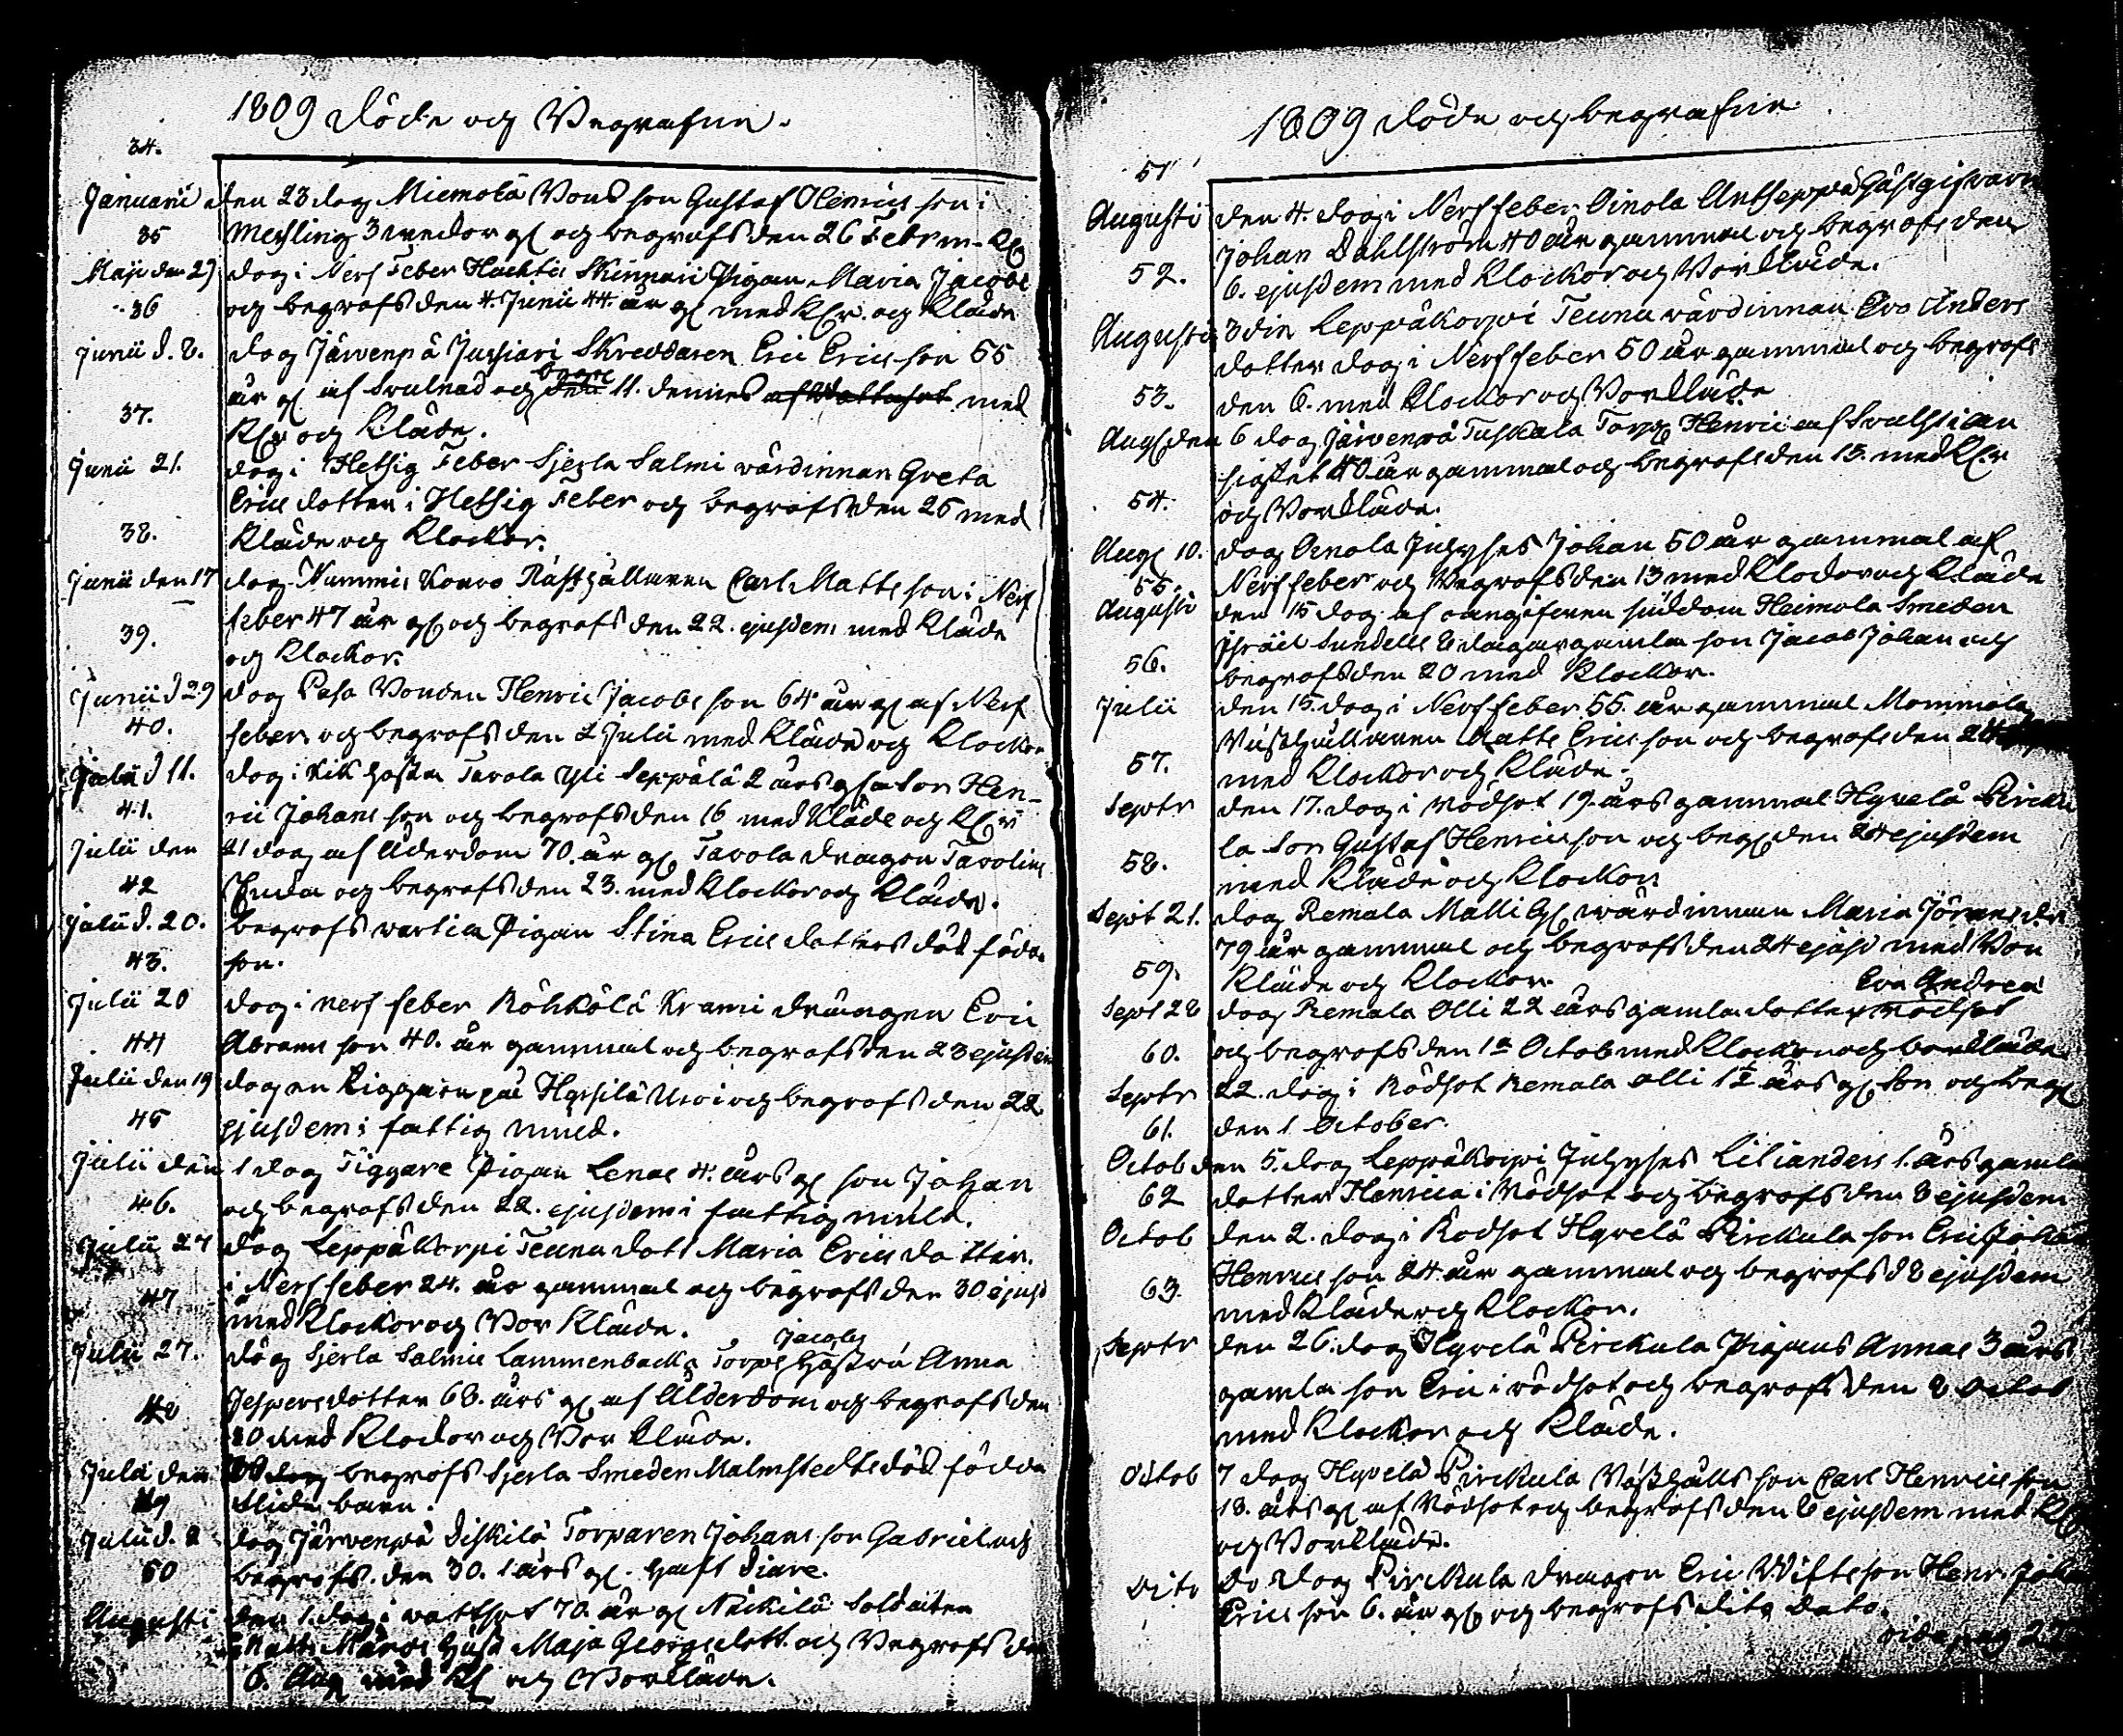 1809 döde og Begrafne.
34.
Januarii den 23 dog Miemola Bonds son Gustaf Henrics son i
Meszling 3 wedor gl og begrofs den 26 Febru. Klr
35
Maji den 29 dog i Nerf Feber Huchtis Skinnari Pigan Maria Jacobs
og begrofs den 4. Junii 44 år gl med Klr. og Kläde
36
Junii d. 8. dog Järvenpä Jussiari Skreddaren Eric Erics son 55
år gl af Svulnad og begr 11. dennes med
Klr og Kläde.
37.
Junii 21. dog i Hetsig Feber Sjerla Salmi värdinnan Greta
Erics dotter i Hetsig Feber og begrofs den 25 med
Kläde og Klockor.
38.
Junii den 17 dog Nummis Kouvo Råsthållaren Carl Matts son i Nerf
feber 47 år gl og begrofs den 22. ejusdem med Kläde
og Klockor.
39.
Junii d 29 dog Pesa Bonden Henric Jacobs son 64 år gl af Nerf
feber og begrofs den 2 Julii med Kläde og Klockor
40.
Julii d 11. dog i Kik hosta Tavola Yli Seppälä 2 års gla Son Hen-
ric Johans son og begrofs den 16 med Kläde og Klr
41.
Julii den 21 dog af ålderdom 70. år gl Tavola dragon Tavolins
Enka og begrofs den 23. med Klockor og Kläde.
42
Julii d. 20. begrofs wertila Pigan Stina Erics dotters död födda
son.
43.
Julii 20 dog i nerf feber Röhkölä Krami drängen Eric
Abrams son 40. år gammal og begrofs den 23 ejusdem
44
Julii den 19 dog en Tiggare på Hyssilä Uroi og begrofs den 22
ejusdem i fattig mull.
45
Julii den 1 dog Tiggare Pigan Lenas 4. års gl son Johan
og begrofs den 22. ejusdem i fattig mull.
46.
Julii 27 dog Leppäkorpi Teunu dott Maria Erics dotter.
i Nerf feber 24. år gammal og begrofs den 30 ejusd
med Klockor og Bor Kläde.
47
Julii 27. dog Sjerla Salmis Lammenbacka Torp Jacobs Hustru Anna
Jespersdotter 68. års gl af Ålderdom og begrofs den
30 med Klockor og Bor Kläde.
48
Julii den begrofs Sjerla Smeden Malmstedts död födda
barn.
49
Julii d. 2 dog Järvenpä Diskilä Torparen Johans son Gabriel og
begrofs. den 30. 1 års gl. haft Diare.
50
Augusti den 1. dog i wattsot 70 år gl Näckilä Soldaten
Matts Hust Maja Georgsdott. og Begrofs den
6. Aug med Kl og Borkläde.
1809 döde og begrafne
51
Augusti den 4. dog i Nerf feber Oinola Anttseppä Gästgifvaren
Johan Dahlström 40 år gammal og begrofs den
6. ejusdem med Klockor og Borkläde.
52.
Augusti 3 din Leppäkorpi Teunu värdinnan Eva Anders
dotter dog i Nerf feber 50 år gammal og begrofs
den 6. med Klockor og Borkläde
53.
Augl den 6 dog Järvenpä Tuskala Torp Henric af
40 år gammal og begrofs den 13. med Klr
og Borkläde.
54.
Augl 10. dog Oinola Inhyses Johan 50 år gammal af
Nerf feber og Begrofs den 13 med Klockor og Kläde
55.
Augusti den 15 dog af oangifven siukdom Heimola Smeden
Israel Sundells 8 dagar gamla son Jacob Johan och
begrofs den 20 med Klockor.
56.
Julii den 15. dog i Nerf feber 55. år gammal Mommola
Rusthållaren Matts Ericsson og begrofs den 24
med Klockor og Kläde.
57.
Septr den 17. dog i rödsot 19. års gammal Hyvelä Pircku
la Son Gustaf Henricsson og begl den 24 ejusdem
med Kläde og Klockor
58.
Sept 21. dog Remala Malli Gl wärdinnan Maria Jöransdr
79 år gammal og begrofs den 24 ejusd med Bor
Kläde og Klockor.
59.
Sept 28 dog Remala Olli 22 års gamla dotter Eva Andrea rödsot
og begrofs den 1a Octob med Klockor och borkläde
60.
Septr 22. dog i Rödsot Remala olli 1½ års gl Son og begl
den 1 October.
61.
Octob den 5. dog Leppäkorpi Inhyses Lilianders 1. års gamla
dotter Henrica i Rödsot og begrofs den 8 ejusdem
62
Octob den 2. dog i Rodsot Hyvelä Pirckula son Eric Johan
Henrics son 24 år gammal og begrofs d 8 ejusdem
med Kläde og Klockor.
63.
Septr den 26. dog Hyvelä Pirckula Pigans Annas 3 års
gamla son Eric i rödsot og begrofs den 8 Octob
med Klockor och Kläde.
Octob 7 dog Hyvelä Pirckula Rusthålls son Carl Henrics son
18. års gl af Rödsot og begrofs den 8 ejusdem med Kl
og Borkläde.
Dito Do dog Pirckula dragon Eric Wifts son Henr. Joh
Erics son 6. år gl og begrofs dito dato.
vide pag